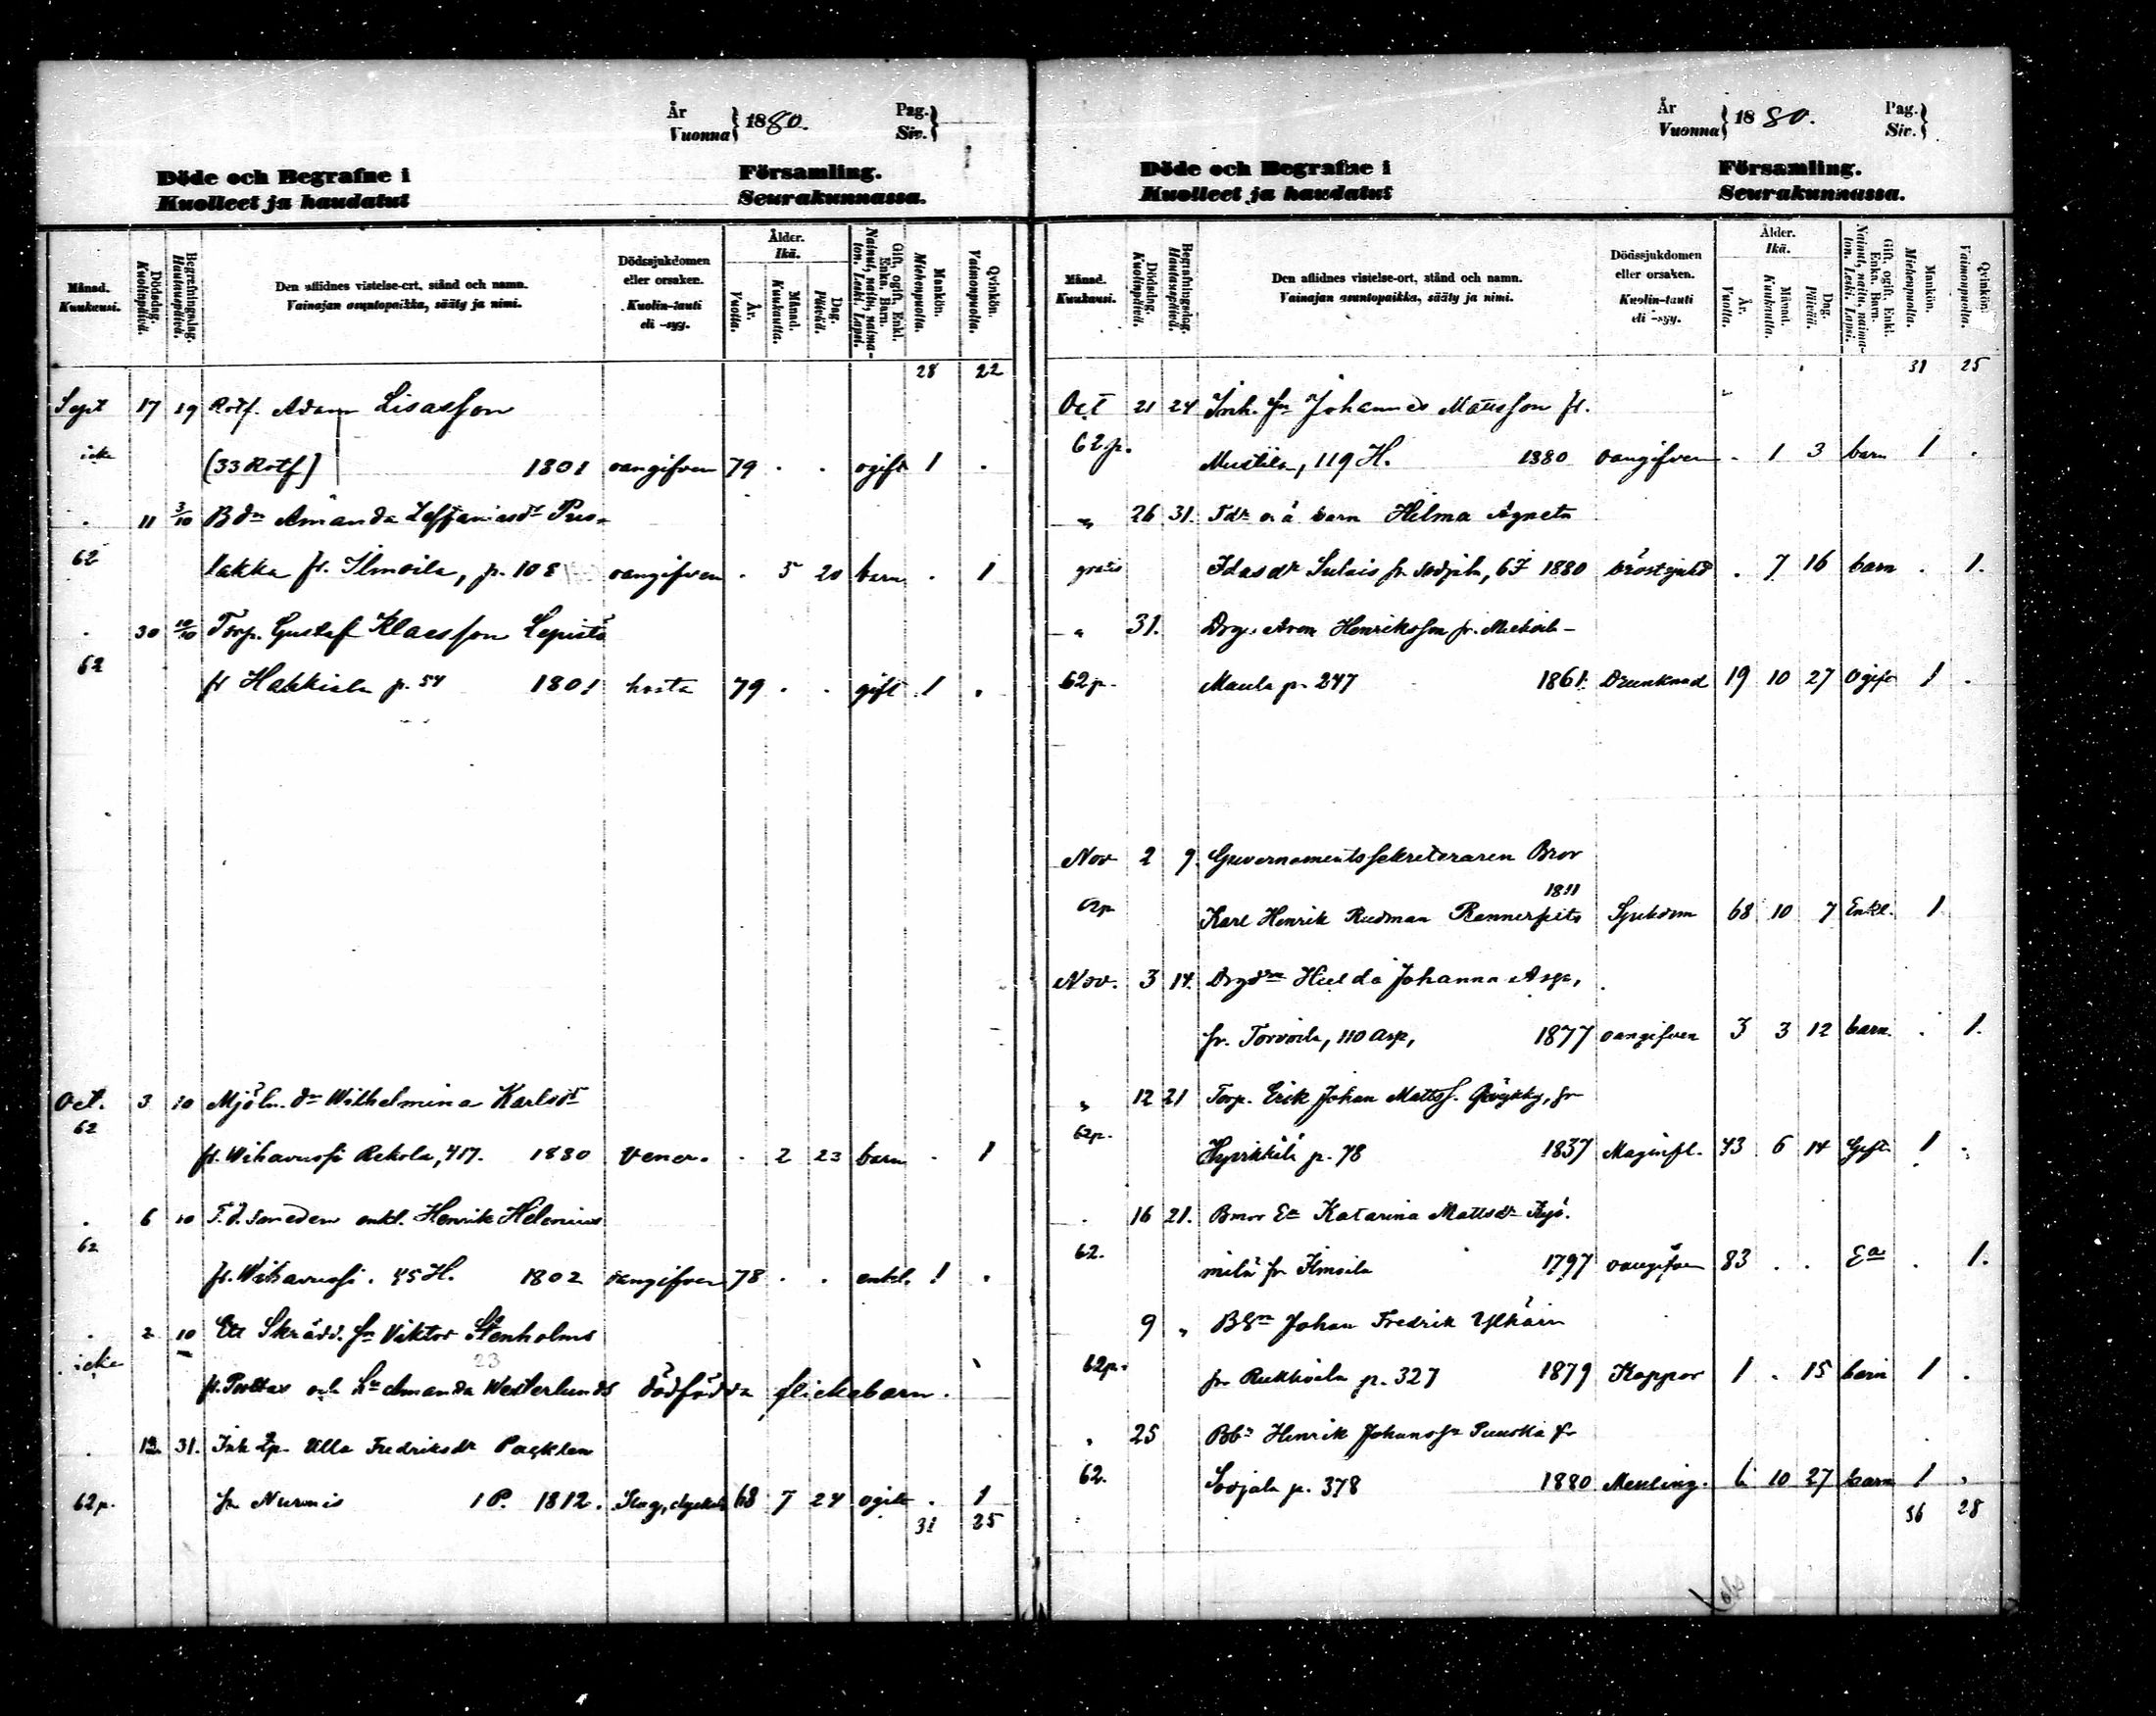 År
Vuonna } 1880.
Pag.
Siv. }
Döde och Begrafne i Församling.
Kuolleet ja haudatut Seurakunnassa.
Månad.
Kuukausi.
Dödsdag.
Kuolinpäivä.
Begrafningsdag.
Hautauspäivä.
Den aflidnes vistelse-ort, stånd och namn.
Vainajan asuntopaikka, sääty ja nimi.
Dödssjukdomen
eller orsaken.
Kuolin-tauti
eli -syy.
Ålder.
Ikä.
År.
Vuotta.
Månad.
Kuukautta.
Dag.
Päivää.
Gift, ogift, Enkl.
Enka, Barn.
Nainut, naitu, naima-
ton. Leski. Lapsi.
Mankön.
Miehenpuolta.
Qvinkön.
Vaimonpuolta.
28 22
Sept 17 19 Rotf. Adam Lisasson
icke (33 Rotf) 1801 oangifven 79 . . ogift 1 .
. 11 3/10 Bdn Amanda Zeffaniasdr
62 lakka fr. Ilmoila, p. 108 oangifven . 5 20 barn . 1
. 30 10/10 Torp. Gustaf Klaesson Lepistö
62 fr Hakkiala p. 54 1801 hosta 79 . . gift 1 .
Oct. 3 10 Mjöln. dr Wilhelmina Karlsdr
62 fr. Wihavuosi Rekola, 417. 1880 Vener. . 2 23 barn . 1
. 6 10 F.d. smeden enkl. Henrik Helenius
62 fr. Wihavuosi. 45 H. 1802 oangifven 78 . . enkl. 1 .
. 2 10 Ett Skrädd. sn Viktor Stenholms
icke fr. Puttas och Amanda Westerlunds dödfödda flickebarn.
. 12 31. Inh Ulla Fredriksdr
62p. fr Nurmis 1 P. 1812. 68 7 24 ogift . 1
31 25
År
Vuonna } 1880.
Pag.
Siv. }
Döde och Begrafne i Församling.
Kuolleet ja haudatut Seurakunnassa.
Månad.
Kuukausi.
Dödsdag.
Kuolinpäivä.
Begrafningsdag.
Hautauspäivä.
Den aflidnes vistelse-ort, stånd och namn.
Vainajan asuntopaikka, sääty ja nimi.
Dödssjukdomen
eller orsaken.
Kuolin-tauti
eli -syy.
Ålder.
Ikä.
År.
Vuotta.
Månad.
Kuukautta.
Dag.
Päivää.
Gift, ogift, Enkl.
Enka, Barn.
Nainut, naitu, naima-
ton. Leski. Lapsi.
Mankön.
Miehenpuolta.
Qvinkön.
Vaimonpuolta.
31 25
Oct 21 24 Inh. sn Johannes Mattsson fr.
62p. Mustila, 119 H. 1880 oangifven . 1 3 barn 1 .
" 26 31. barn Hilma Agneta
gratis Idasdr fr 1880 . 7 16 barn . 1.
" 31. Drg. Aron Henriksson fr.
62p. Maula p. 247 1861. Drunknad 19 10 27 Ogift 1 .
Nov 2 9. Guvernementssekreteraren Bror
1811
62p Karl Henrik Rudman Sjukdom 68 10 7 Enkl. 1
Nov. 3 14. Hulda Johanna Asp,
fr. Torvoila, 110 Asp, 1877 oangifven 3 3 12 barn. . 1.
" 12 21 Torp. Erik Johan Mattss. fr
62p. p. 78 1837 Maginfl. 43 6 14 Gift 1 .
. 16 21. Bmor Ea Katarina Mattsdr Kyö-
62. milä fr Ilmoila 1797 oangifven 83 . . Ea . 1.
9 " Bsn Johan Fredrik
62p. fr p. 327 1879 Koppor 1 . 15 barn 1 .
. 25 Henrik Johanss. fr
62. Sorjala p. 378 1880 10 27 barn 1 .
36 28